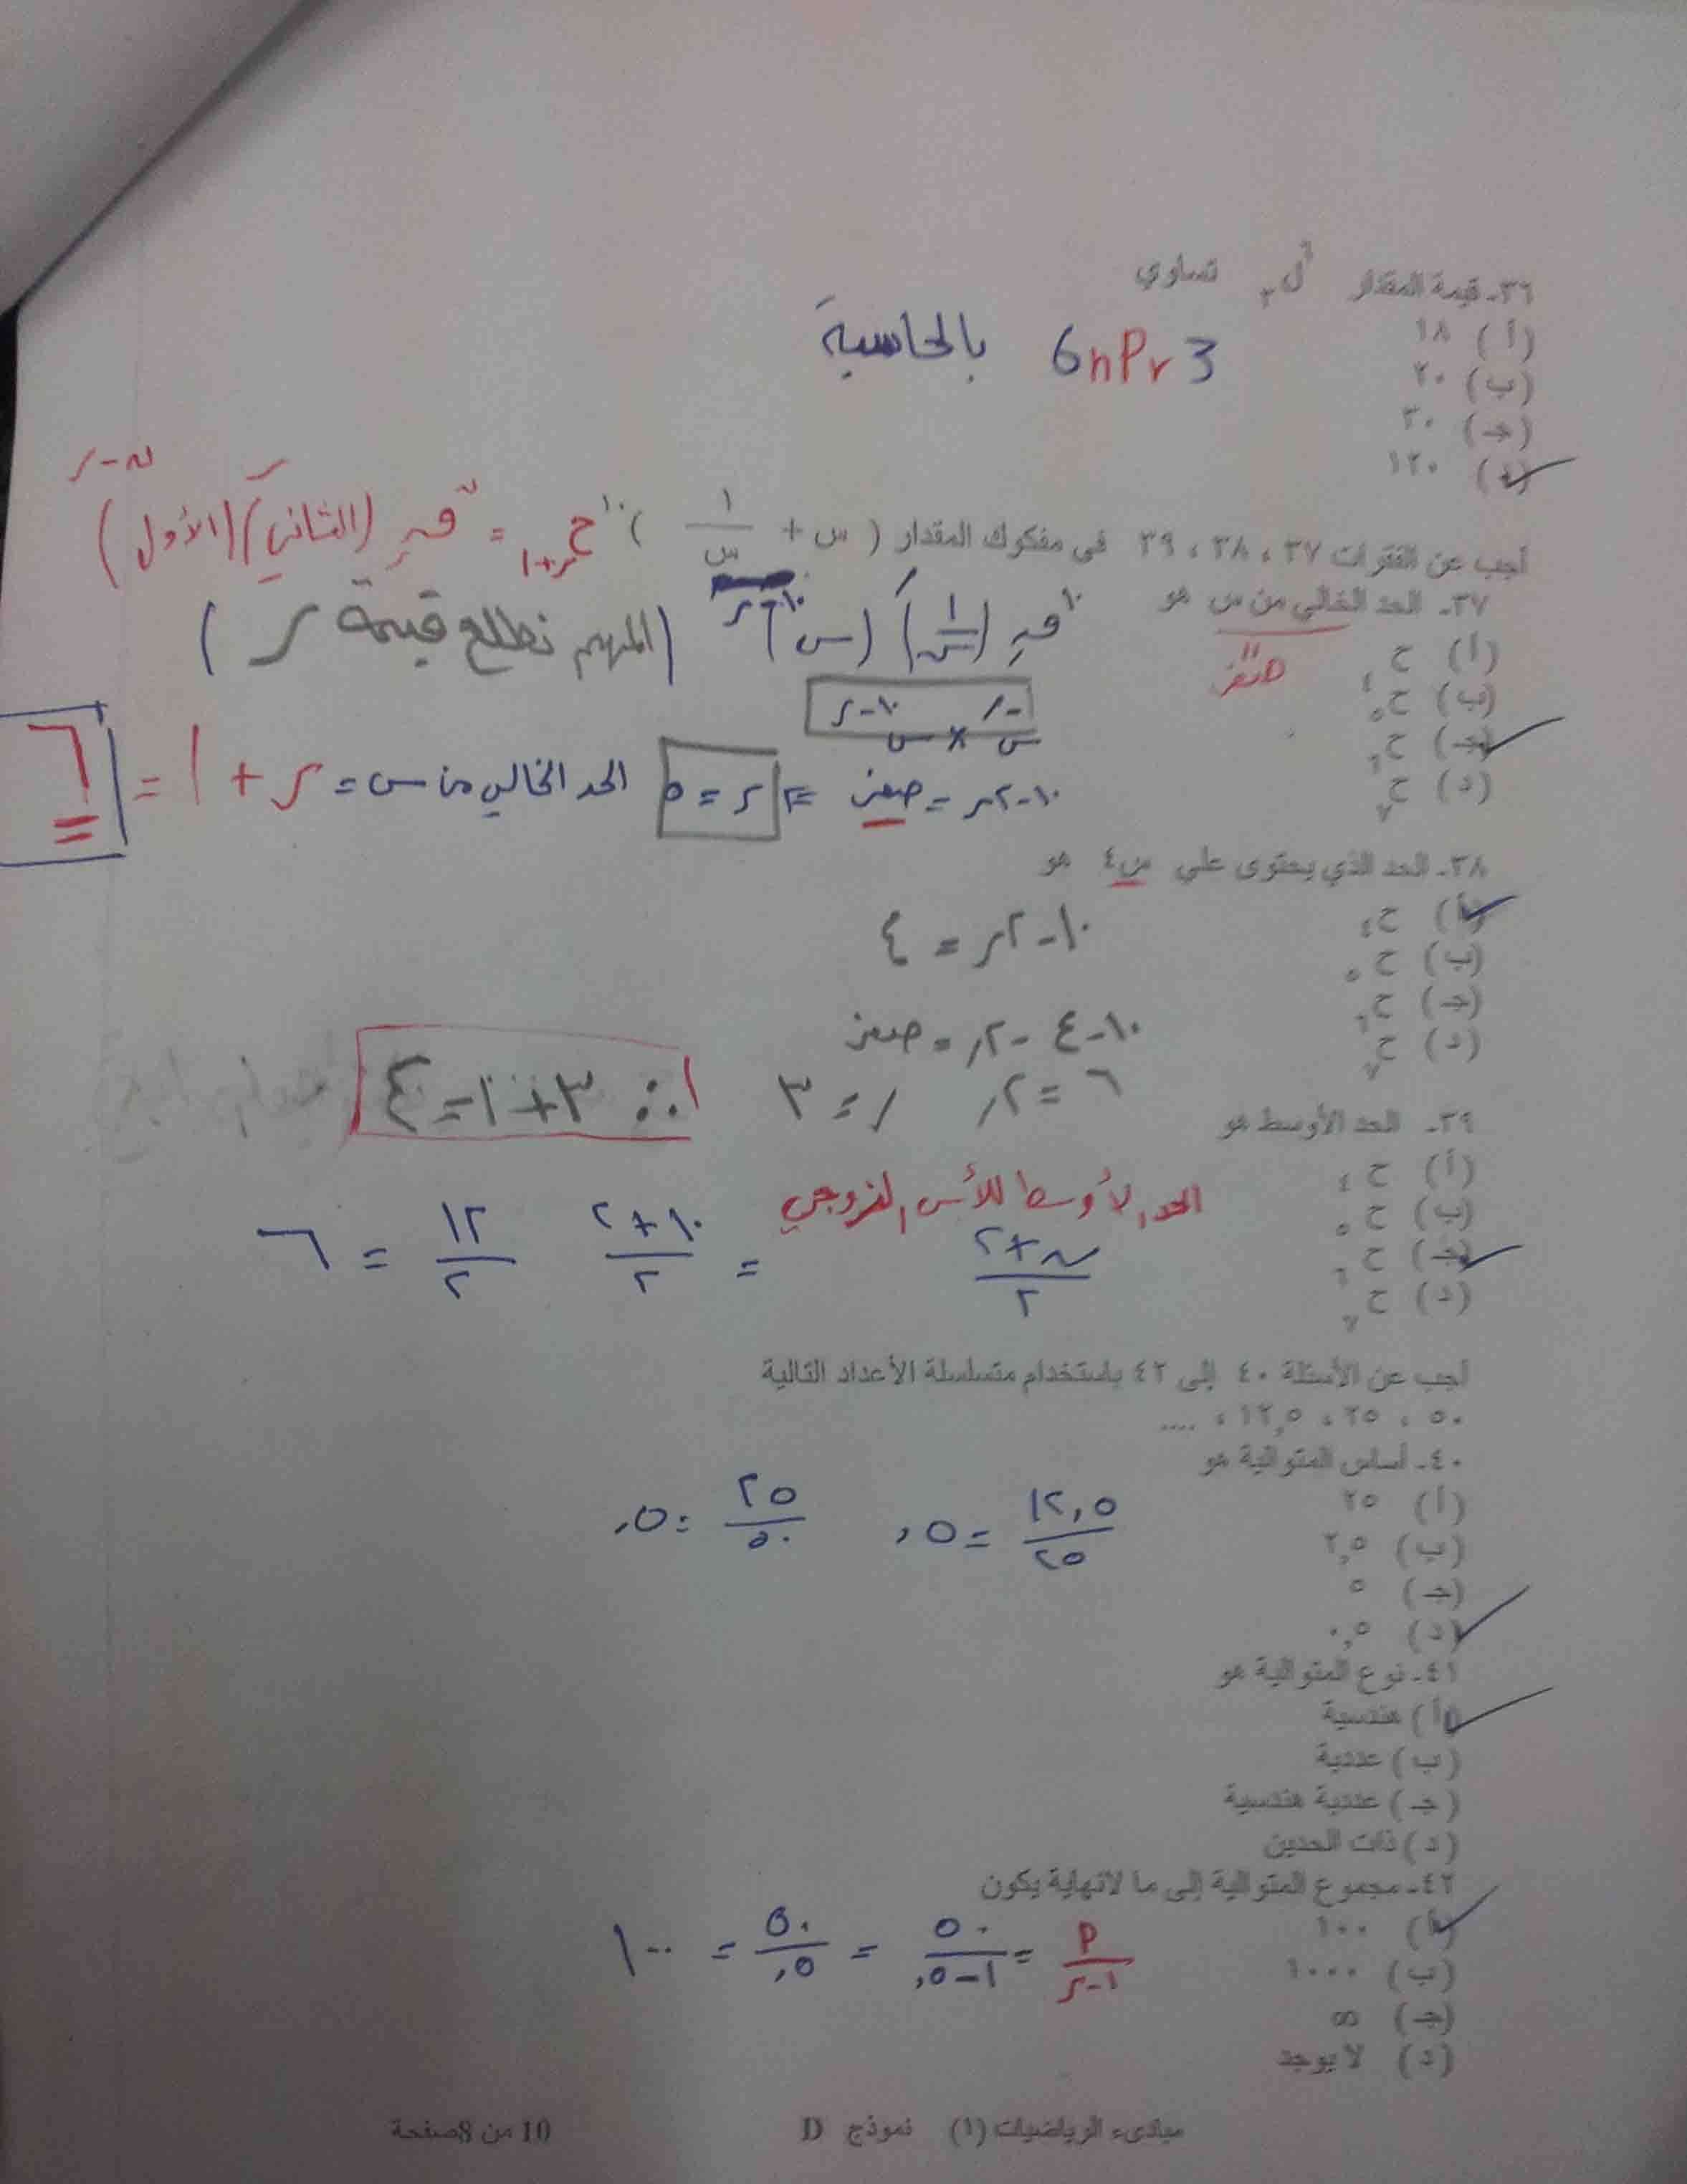 ٣٦- قيمة المقدار ⁶ل₃ تساوي
(أ) ١٨
(ب) ٢٠
(جـ) ٣٠
(د) ١٢٠
6nPr3 بالحاسبة
أجب عن الفقرات ٣٧ ، ٣٨ ، ٣٩ في مفكوك المقدار ( س + ١/س )¹⁰ ح ر+١ = ن قر (الثاني)ر (الأول) ن-ر
٣٧- الحد الخالي من س هو
صفر
(أ) ح ٤
(ب) ح ٥
(جـ) ح ٦
(د) ح ٧
١٠ قر (١/س)ر (س) ١٠-ر (المهم نطلع قيمة ر)
س -ر × س ١٠-ر
١٠-٢ر = صفر ⇐ ر = ٥ الحد الخالي من س = ر + ١ = ٦
٣٨- الحد الذي يحتوى علي س٤ هو
(أ) ح ٤
(ب) ح ٥
(جـ) ح ٦
(د) ح ٧
١٠-٢ر = ٤
١٠-٤-٢ر = صفر
٦ = ٢ر ر = ٣ ∴ ٣+١=٤
٣٩- الحد الأوسط هو
(أ) ح ٤
(ب) ح ٥
(جـ) ح ٦
(د) ح ٧
الحد الأوسط للأس الزوجي
ن+٢/٢ = ١٠+٢/٢ ١٢/٢ = ٦
أجب عن الأسئلة ٤٠ إلى ٤٢ باستخدام متسلسلة الأعداد التالية
٥٠ ، ٢٥ ، ١٢,٥ ، ....
٤٠- أساس المتوالية هو
(أ) ٢٥
(ب) ٢,٥
(جـ) ٥
(د) ٠,٥
١٢,٥/٢٥ = ,٥ ٢٥/٥٠ = ,٥
٤١- نوع المتوالية هو
(أ) هندسية
(ب) عددية
(جـ) عددية هندسية
(د) ذات الحدين
٤٢- مجموع المتوالية إلى ما لانهاية يكون
(أ) ١٠٠
(ب) ١٠٠٠
(جـ) ∞
(د) لا يوجد
م/١-ر = ٥٠/١-,٥ = ٥٠/,٥ = ١٠٠
مبادىء الرياضيات (١) نموذج D 10 من 8صفحة